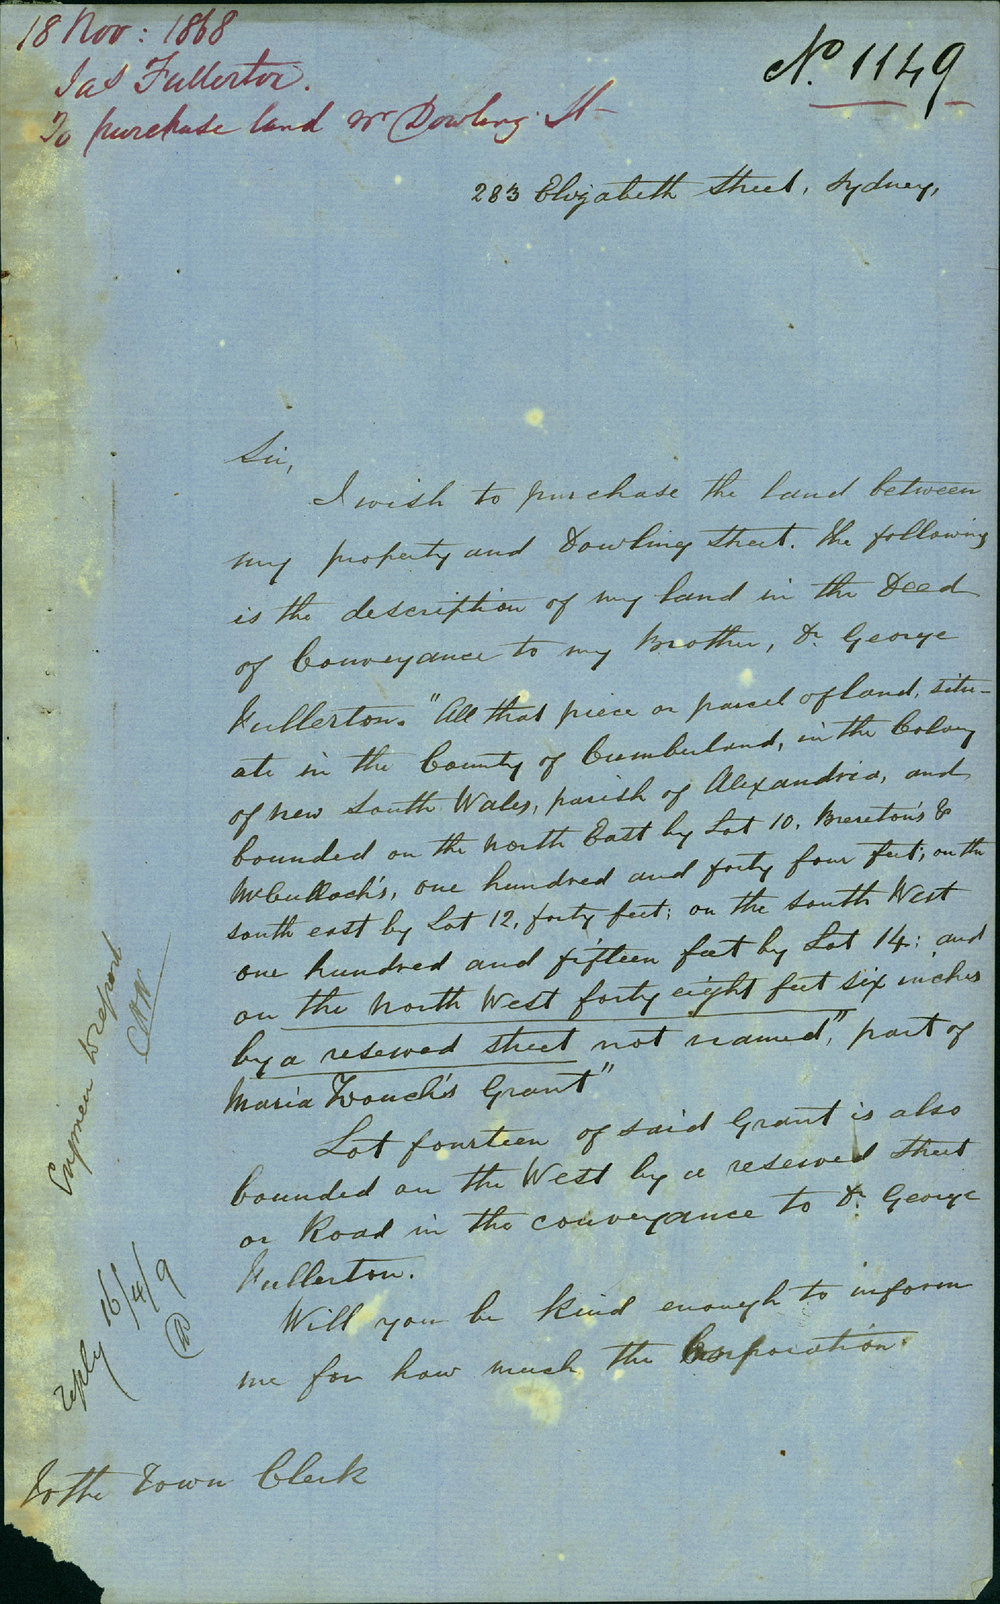 18 Nov: 1868
Jas Fullerton.
To purchase land nr Dowling St
No. 1149
283 Elizabeth Street, Sydney,
Sir,
I wish to purchase the land between
my property and Dowling Street. The following
is the description of my land in the Deed
of Conveyance to my Brother, Dr. George
Fullerton. "All that piece or parcel of land, situ-
ate in the County of Cumberland, in the Colony
of New South Wales, parish of Alexandria, and
bounded on the North East by Lot 10, Brereton's &
McCulloch's, one hundred and forty four feet; on the
south east by Lot 12, forty feet; on the South West
one hundred and fifteen feet by Lot 14: and
on the North West forty eight feet six inches
by a reserved street not named", part of
Maria Fouch's Grant"
Lot fourteen of said Grant is also
bounded on the West by a reserved street
or Road in the conveyance to Dr. George
Fullerton.
Will you be kind enough to inform
me for how much the Corporation
To the Town Clerk
reply 16/4/9
to report